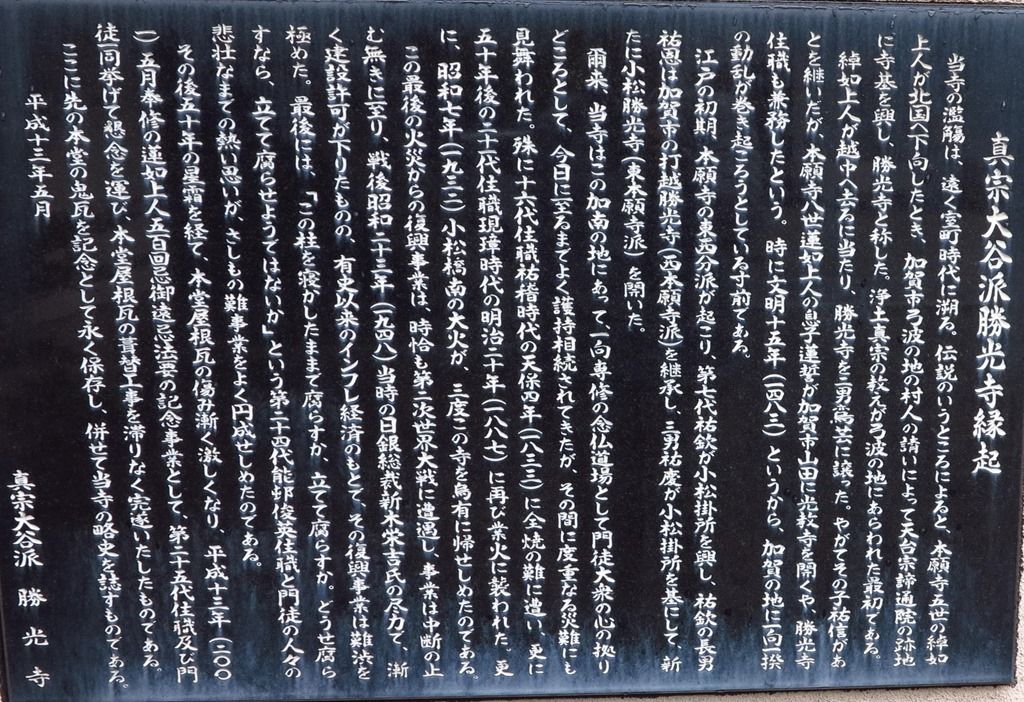 真宗大谷派勝光寺縁起
当寺の濫觴は、遠く室町時代に溯る。伝説のいうところによると、本願寺五世の綽如
上人が北国へ下向したとき、加賀市ろ波の地の村人の請いによって天台宗諦通院の跡地
に寺基を興し、勝光寺と称した。浄土真宗の教えがろ波の地にあらわれた最初である。
綽如上人が越中へ去るに当たり、勝光寺を三男鸞芸に譲った。やがてその子祐信があ
とを継いだが、本願寺八世蓮如上人の息子蓮誓が加賀市山田に光教寺を開くや、勝光寺
住職も兼務したという。時に文明十五年（一四八三）というから、加賀の地に一向一揆
の動乱が巻き起ころうとしている寸前である。
江戸の初期、本願寺の東西分派が起こり、第七代祐欽が小松掛所を興し、祐欽の長男
祐恩は加賀市の打越勝光寺（西本願寺派）を継承し、三男祐慶が小松掛所を基にして、新
たに小松勝光寺（東本願寺派）を開いた。
爾来、当寺はこの加南の地にあって、一向専修の念仏道場として門徒大衆の心の拠り
どころとして、今日に至るまでよく護持相続されてきたが、その間に度重なる災難にも
見舞われた。殊に十六代住職祐稽時代の天保四年（一八三三）に全焼の難に遭い、更に
五十年後の二十代住職現瑋時代の明治二十年（一八八七）に再び業火に襲われた。更
に、昭和七年（一九三二）小松橋南の大火が、三度この寺を烏有に帰せしめたのである。
この最後の火災からの復興事業は、時恰も第二次世界大戦に遭遇し、事業は中断の止
む無きに至り、戦後昭和二十三年（一九四八）当時の日銀総裁新木栄吉氏の尽力で、漸
く建設許可が下りたものの、有史以来のインフレ経済のもとで、その復興事業は難渋を
極めた。最後には、「この柱を寝かしたままで腐らすか、立てて腐らすか。どうせ腐ら
すなら、立てて腐らせようではないか」という第二十四代能邨俊英住職と門徒の人々の
悲壮なまでの熱い思いが、さしもの難事業をよく円成せしめたのである。
その後五十年の星霜を経て、本堂屋根瓦の傷み漸く激しくなり、平成十三年（二〇〇
一）五月奉修の蓮如上人五百回忌御遠忌法要の記念事業として、第二十五代住職及び門
徒一同挙げて懇念を運び、本堂屋根瓦の葺替工事を滞りなく完遂いたしたものである。
ここに先の本堂の鬼瓦を記念として永く保存し、併せて当寺の略史を誌すものである。
平成十三年五月
真宗大谷派 勝光寺